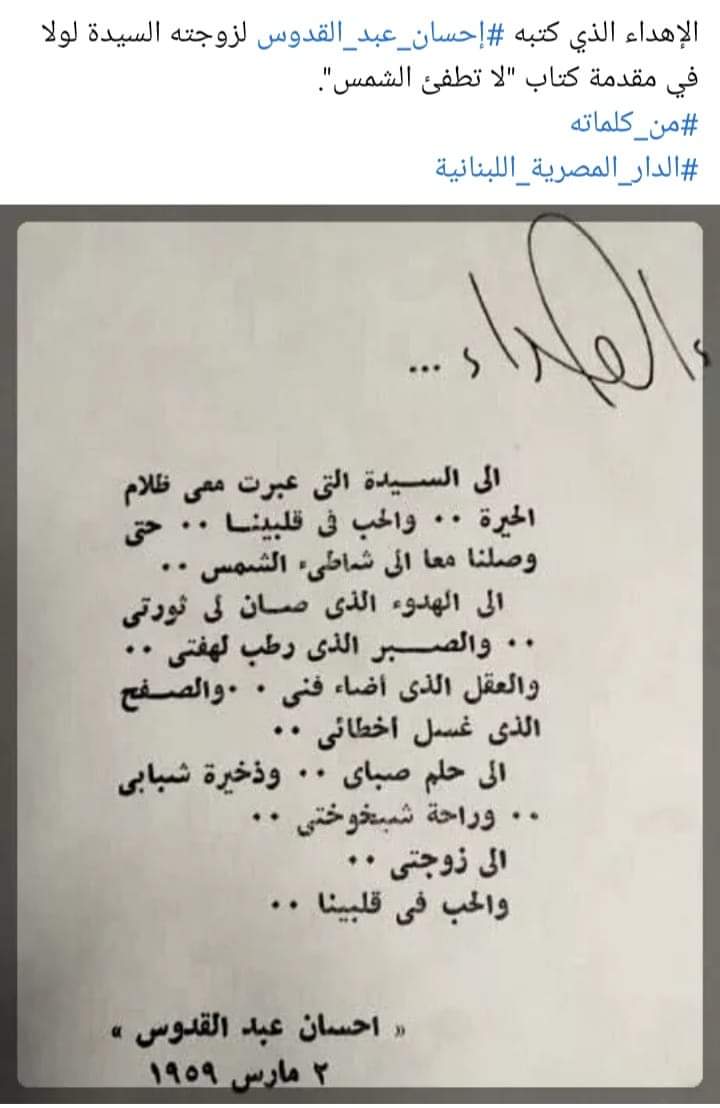 الإهداء الذي كتبه #إحسان_عبد_القدوس لزوجته السيدة لولا
في مقدمة كتاب "لا تطفئ الشمس".
#من_كلماته
#الدار_المصرية_اللبنانية
الاهداء ...
الى الســيدة التى عبرت معى ظلام
الحيرة .. والحب فى قلبينــا .. حتى
وصلنا معا الى شاطىء الشمس ..
الى الهدوء الذى صــان لى ثورتى
.. والصــبر الذى رطب لهفتى ..
والعقل الذى أضاء فنى . .والصــفح
الذى غسل أخطائى ..
الى حلم صباى .. وذخيرة شبابى
.. وراحة شيخوختى ..
الى زوجتى ..
والحب فى قلبينا ..
« احسان عبد القدوس »
٢ مارس ١٩٥٩